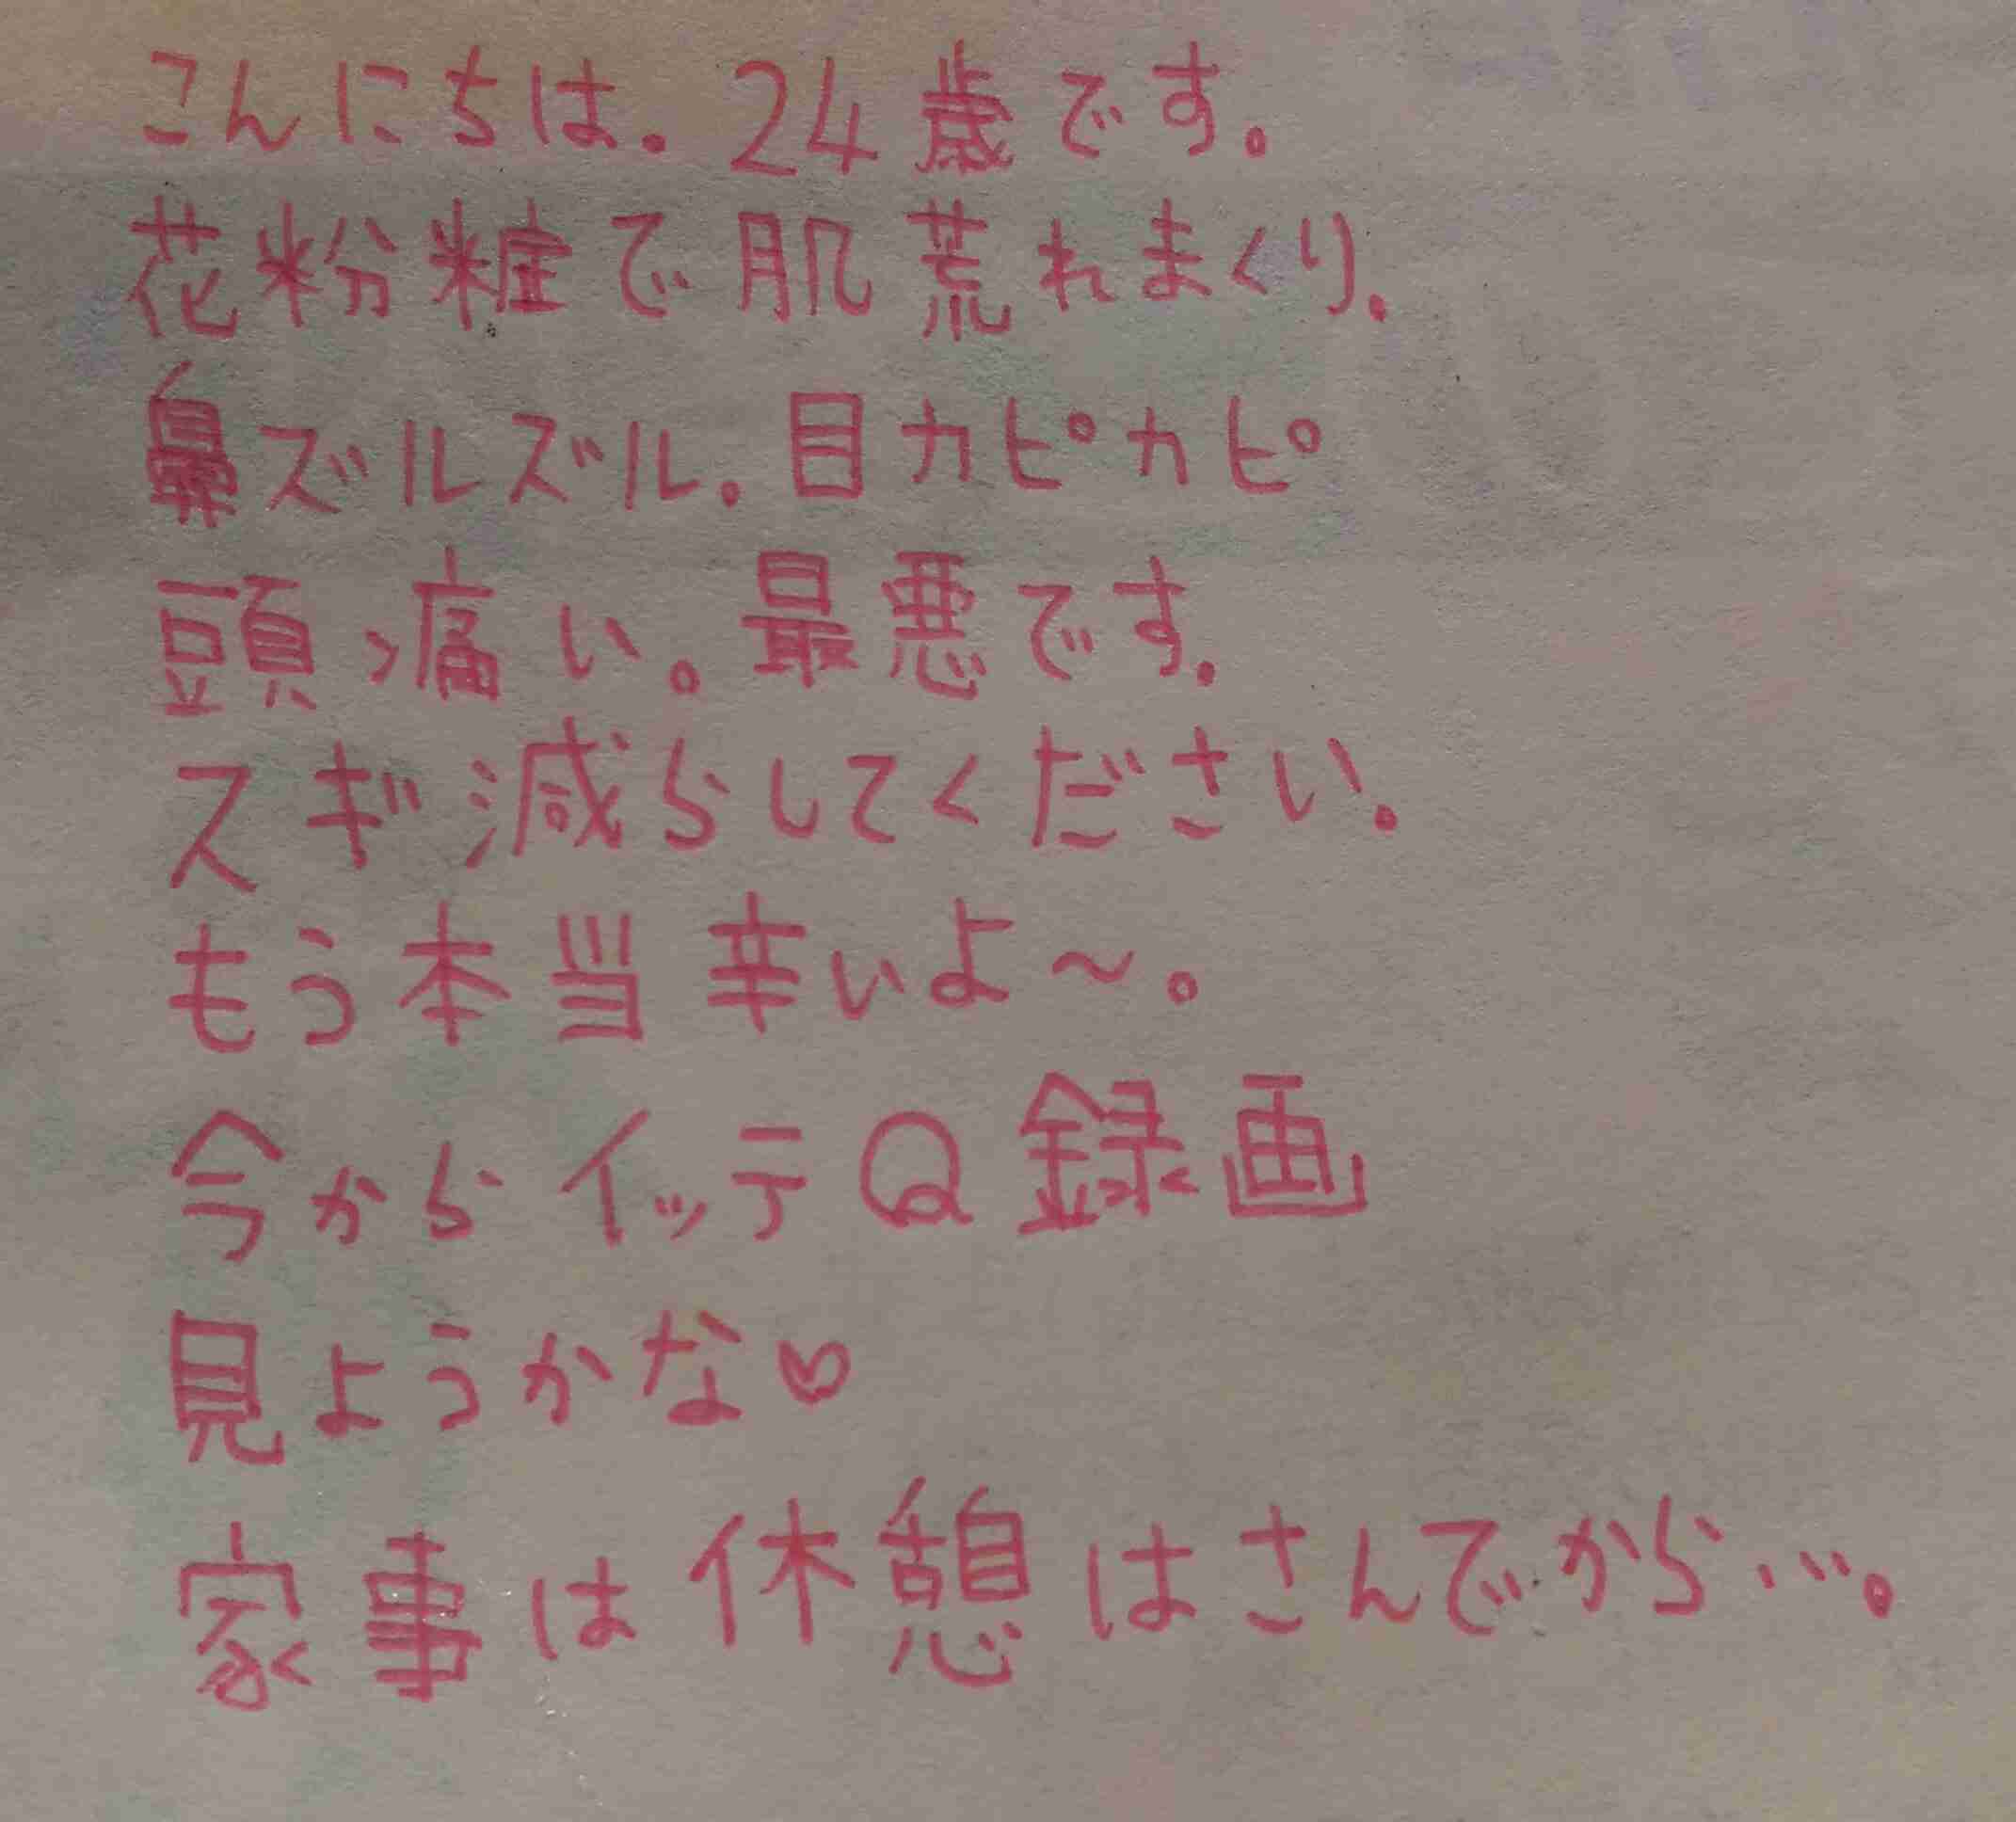 こんにちは。24歳です。
花粉粧で肌荒れまくり。
鼻ズルズル。目カピカピ
頭っ痛い。最悪です。
スギ減らしてください。
もう本当辛いよ～。
今からイッテQ録画
見ようかな♡
家事は休憩はさんでから…。